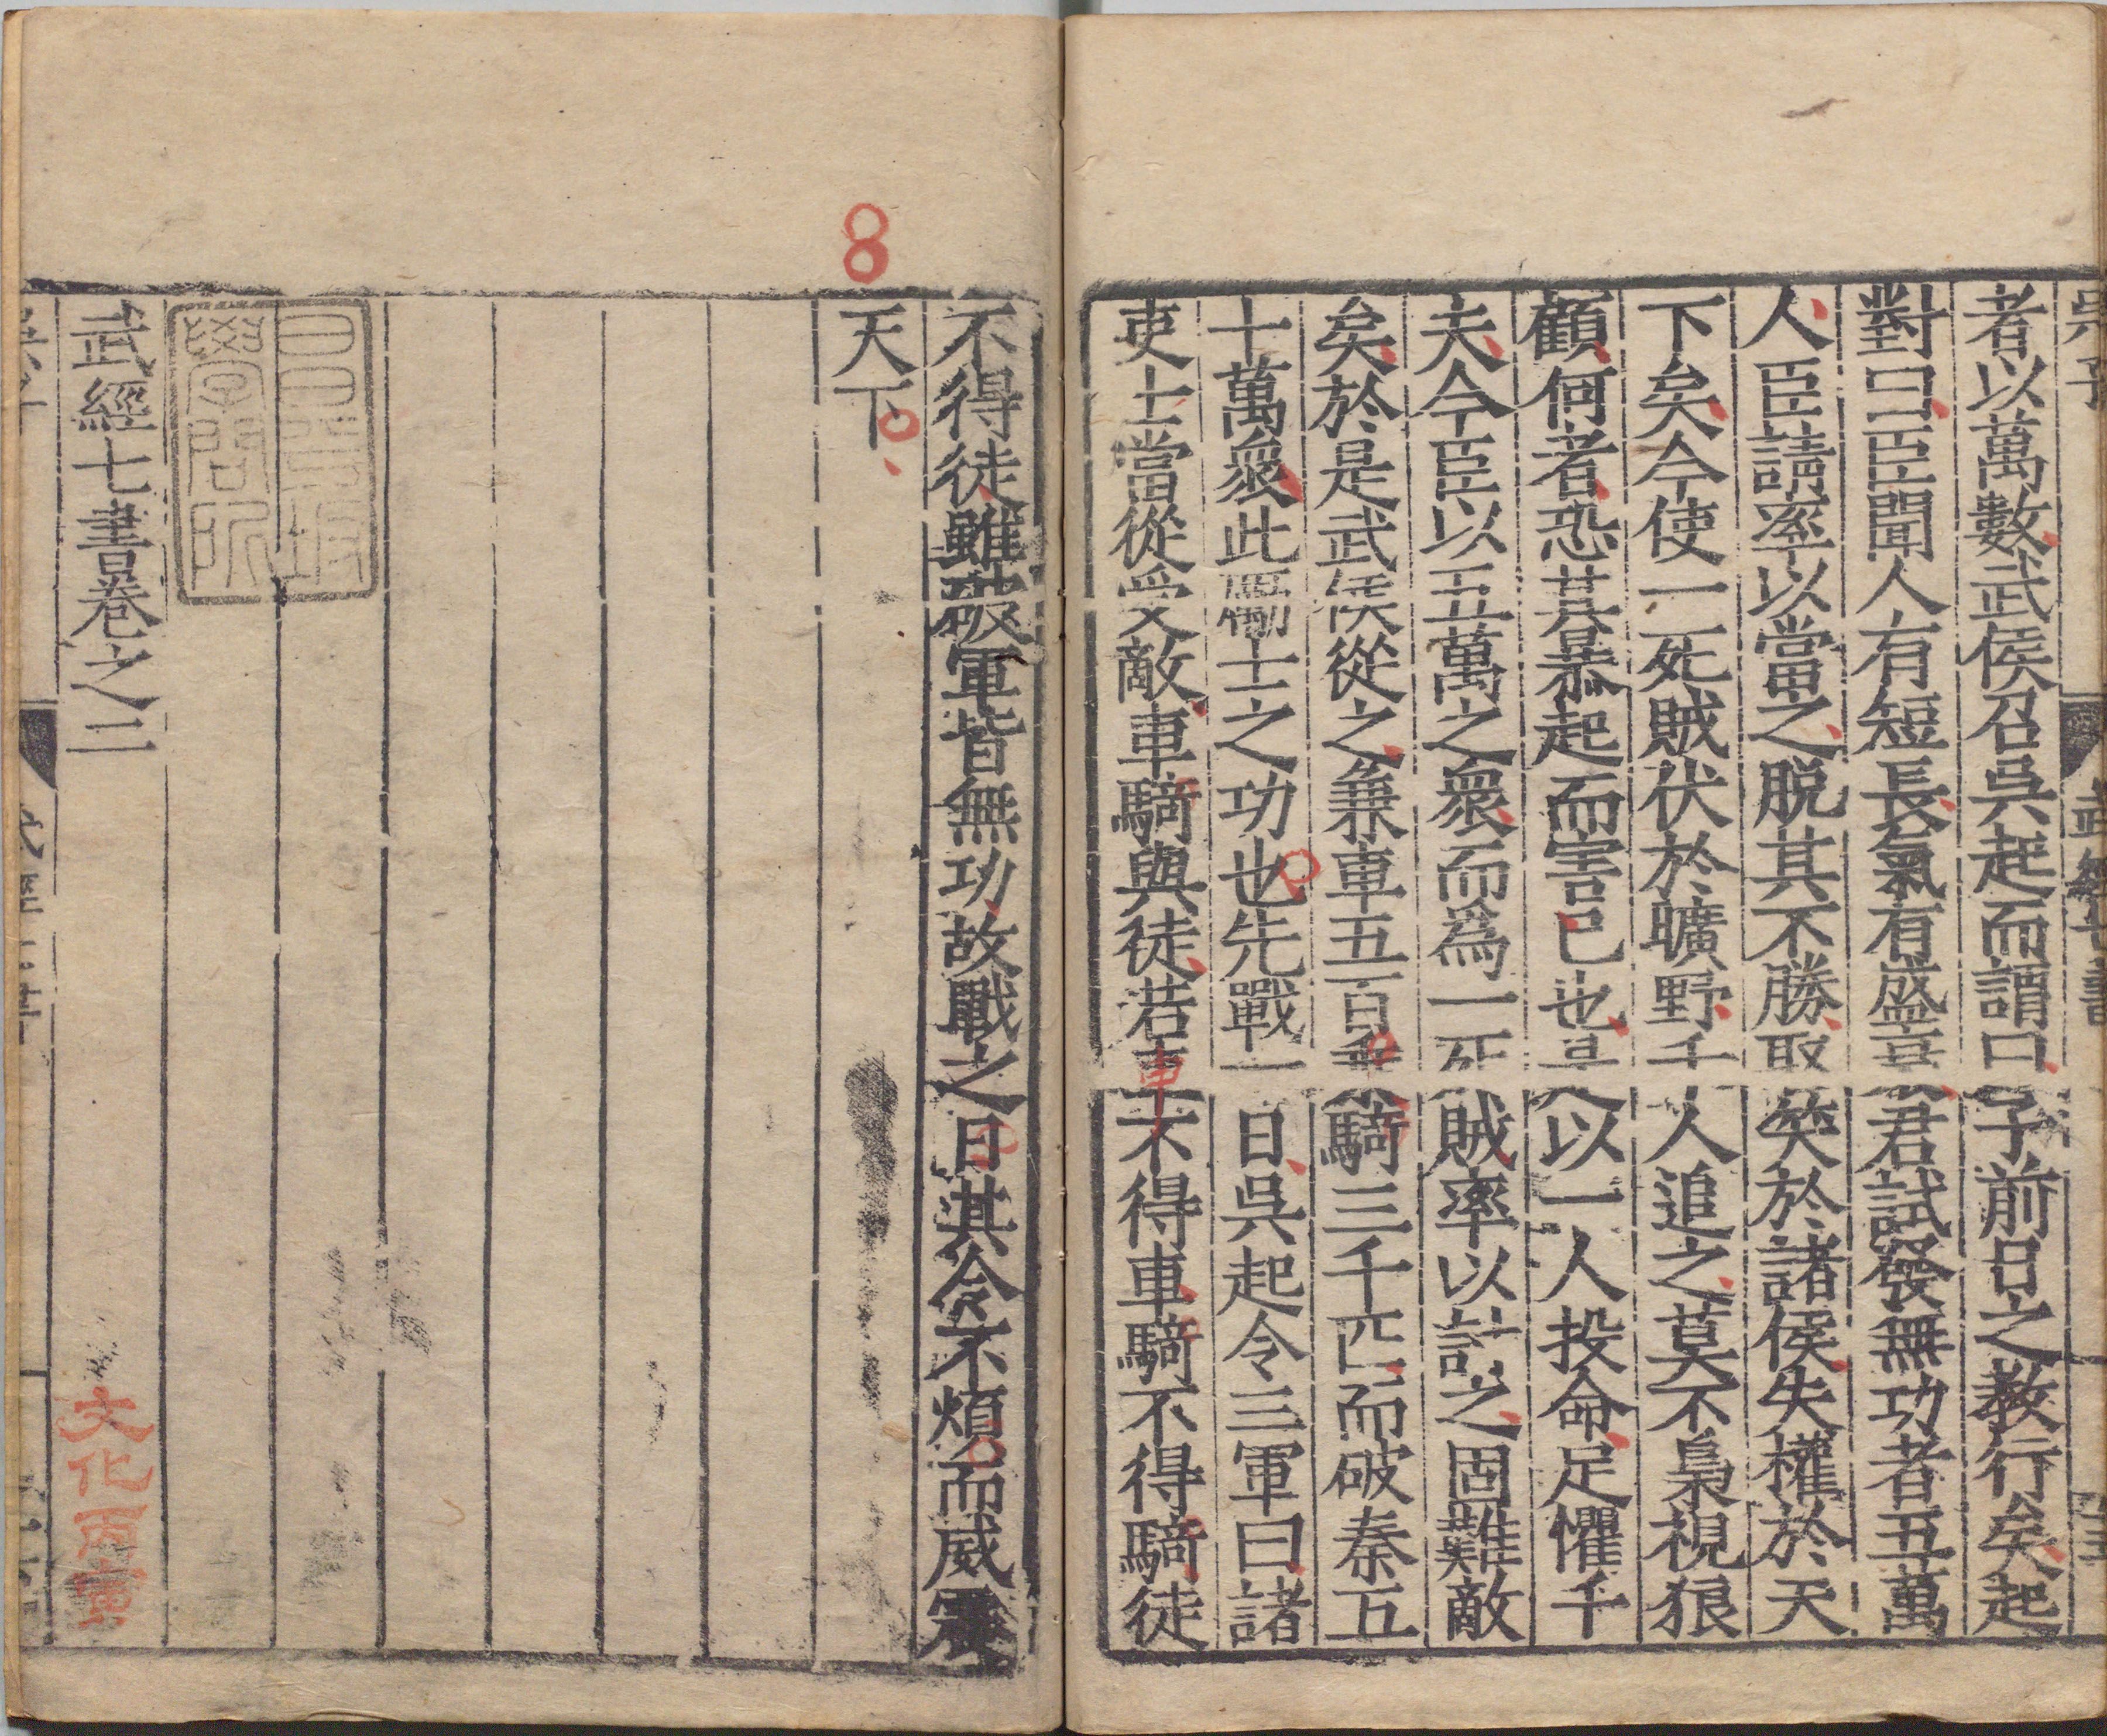 吳子
武經七書
者以萬數武侯召吳起而謂曰子前日之教行矣起
對曰臣聞人有短長氣有盛衰君試發無功者五萬
人臣請率以當之脫其不勝取笑於諸侯失權於天
下矣今使一死賊伏於曠野千人追之莫不梟視狼
顧何者恐其暴起而害己也是以一人投命足懼千
夫今臣以五萬之衆而爲一死賊率以討之固難敵
矣於是武侯從之兼車五百乘騎三千匹而破秦五
十萬衆此勵士之功也先戰一日吳起令三軍曰諸
吏士當從受敵車騎與徒若車不得車騎不得騎徒
不得徒雖破軍皆無功故戰之日其令不煩而威震
天下
8
昌平坂
學問所
武經七書卷之二
文化丙寅